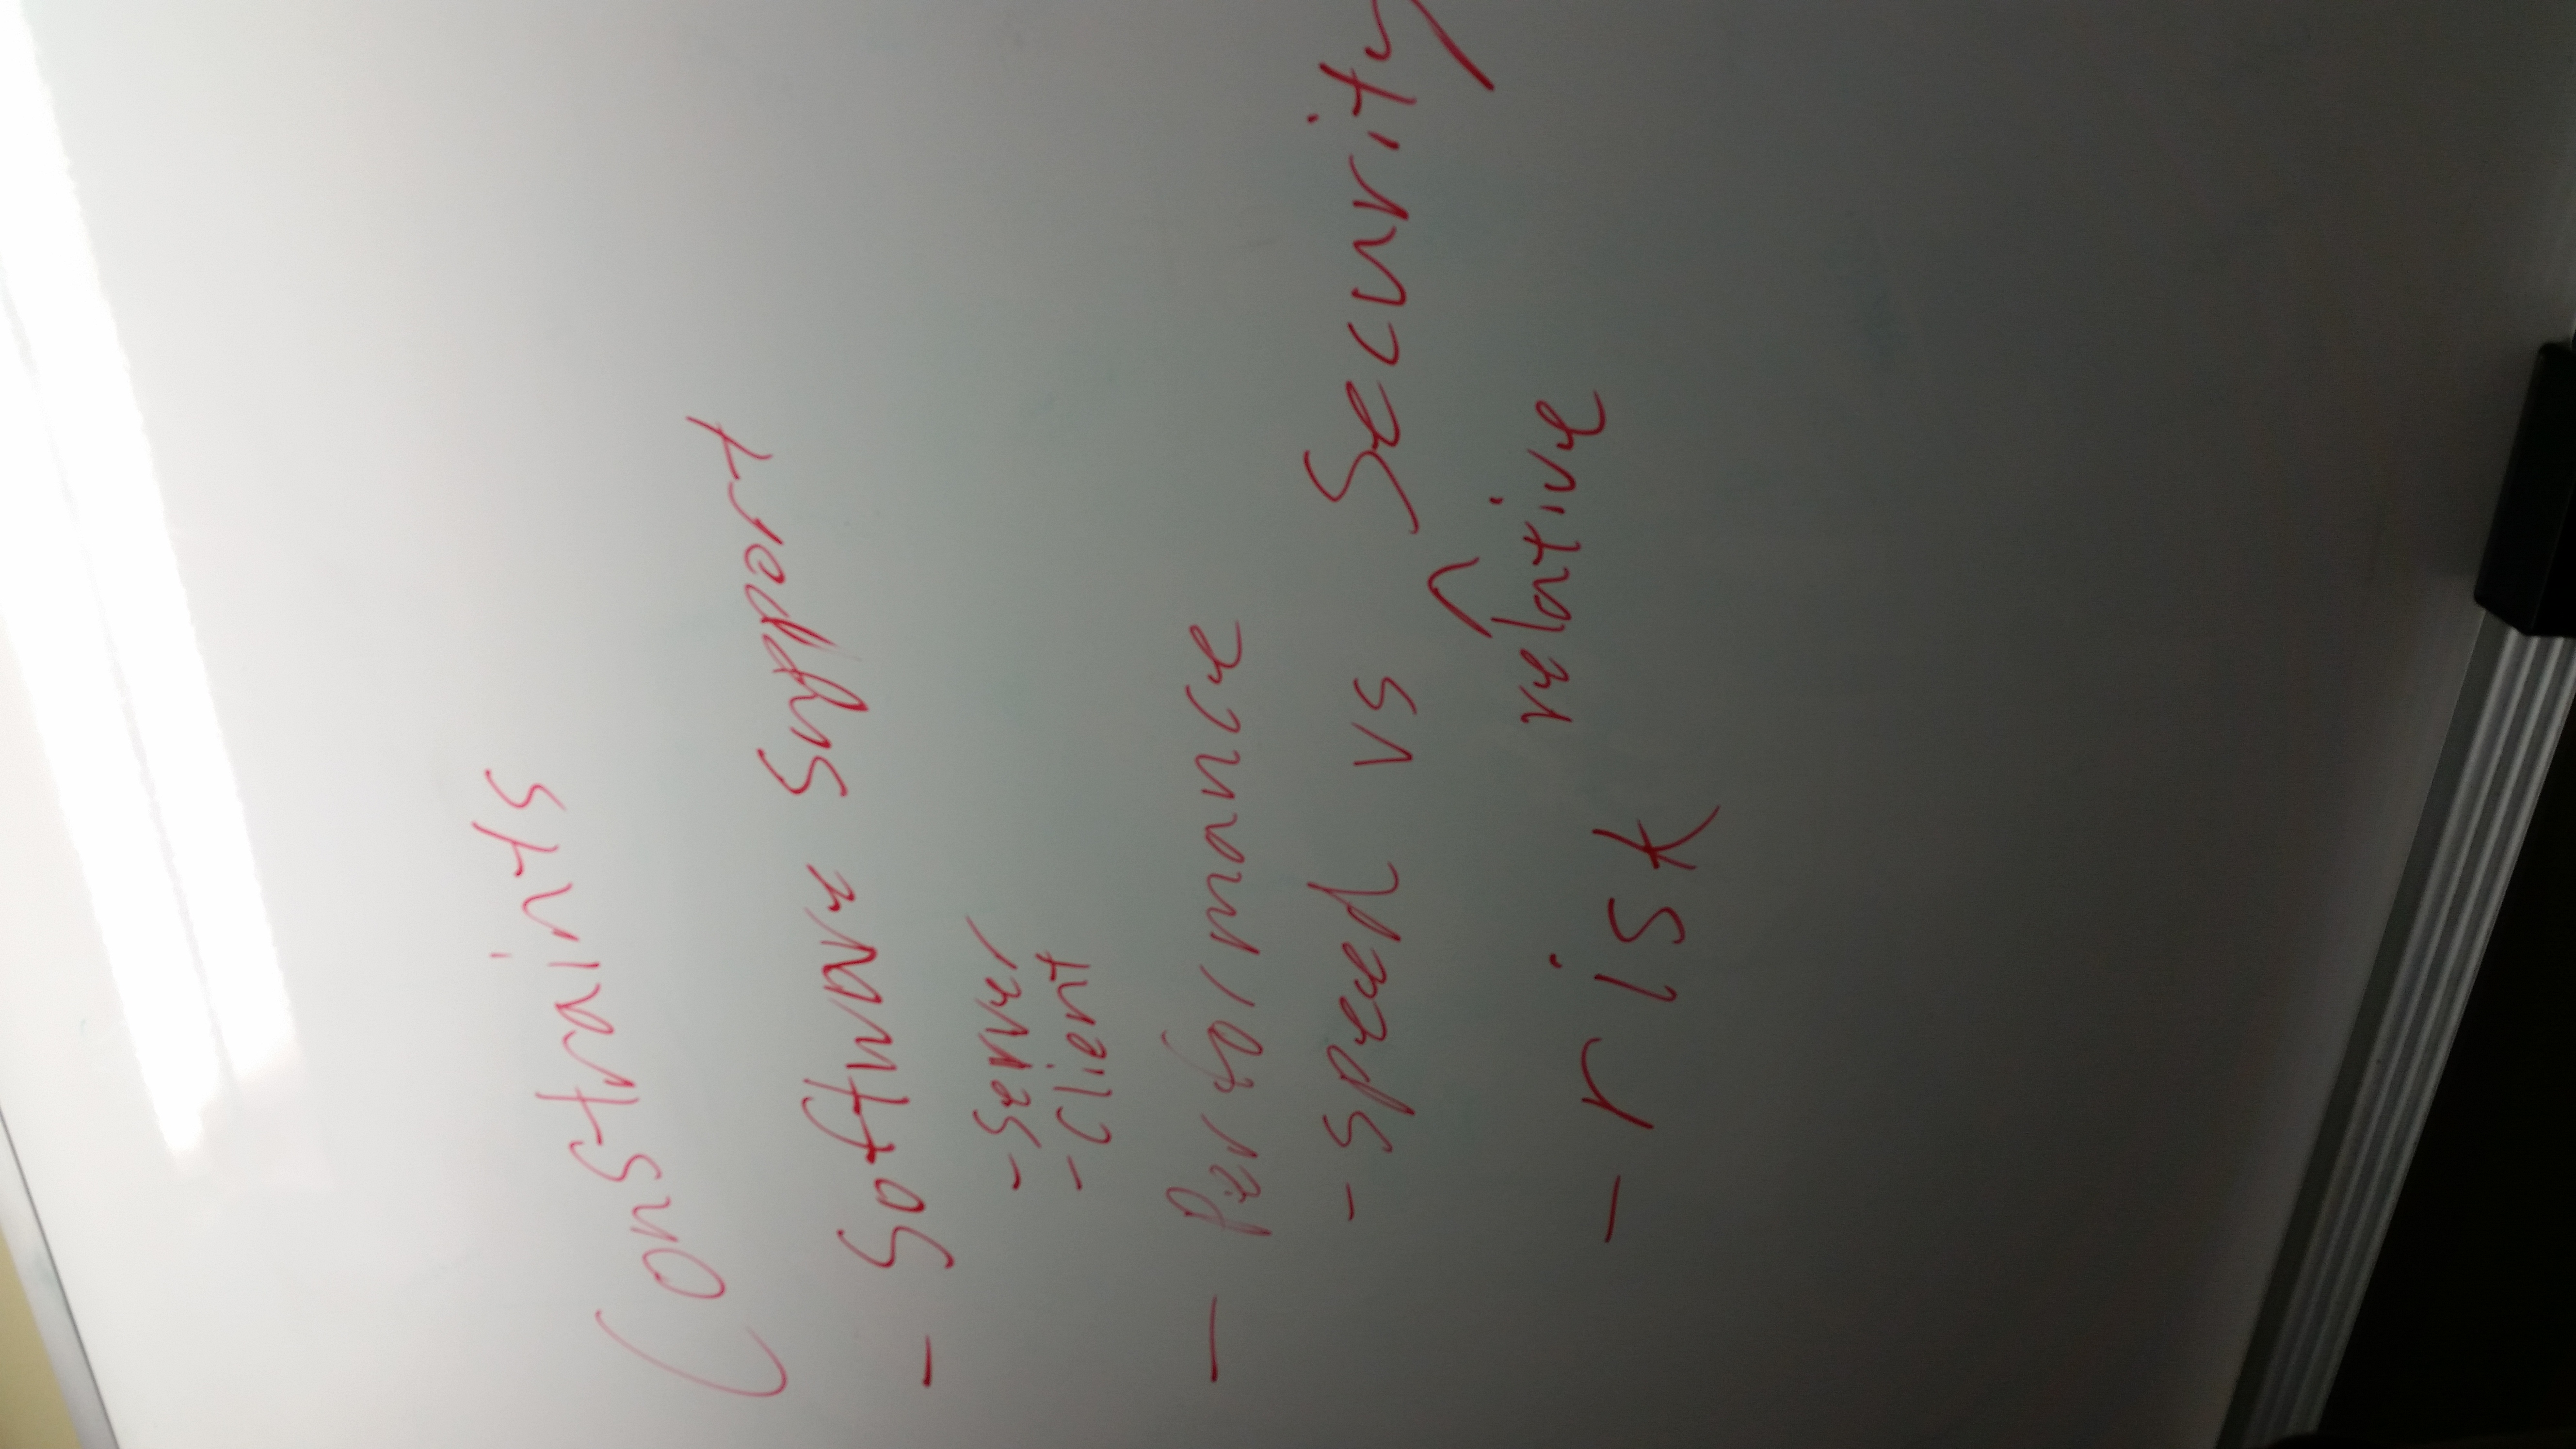 Constraints
- Software Support
- Server
- Client
- Performance
- Speed vs Security
^
relative
- risk